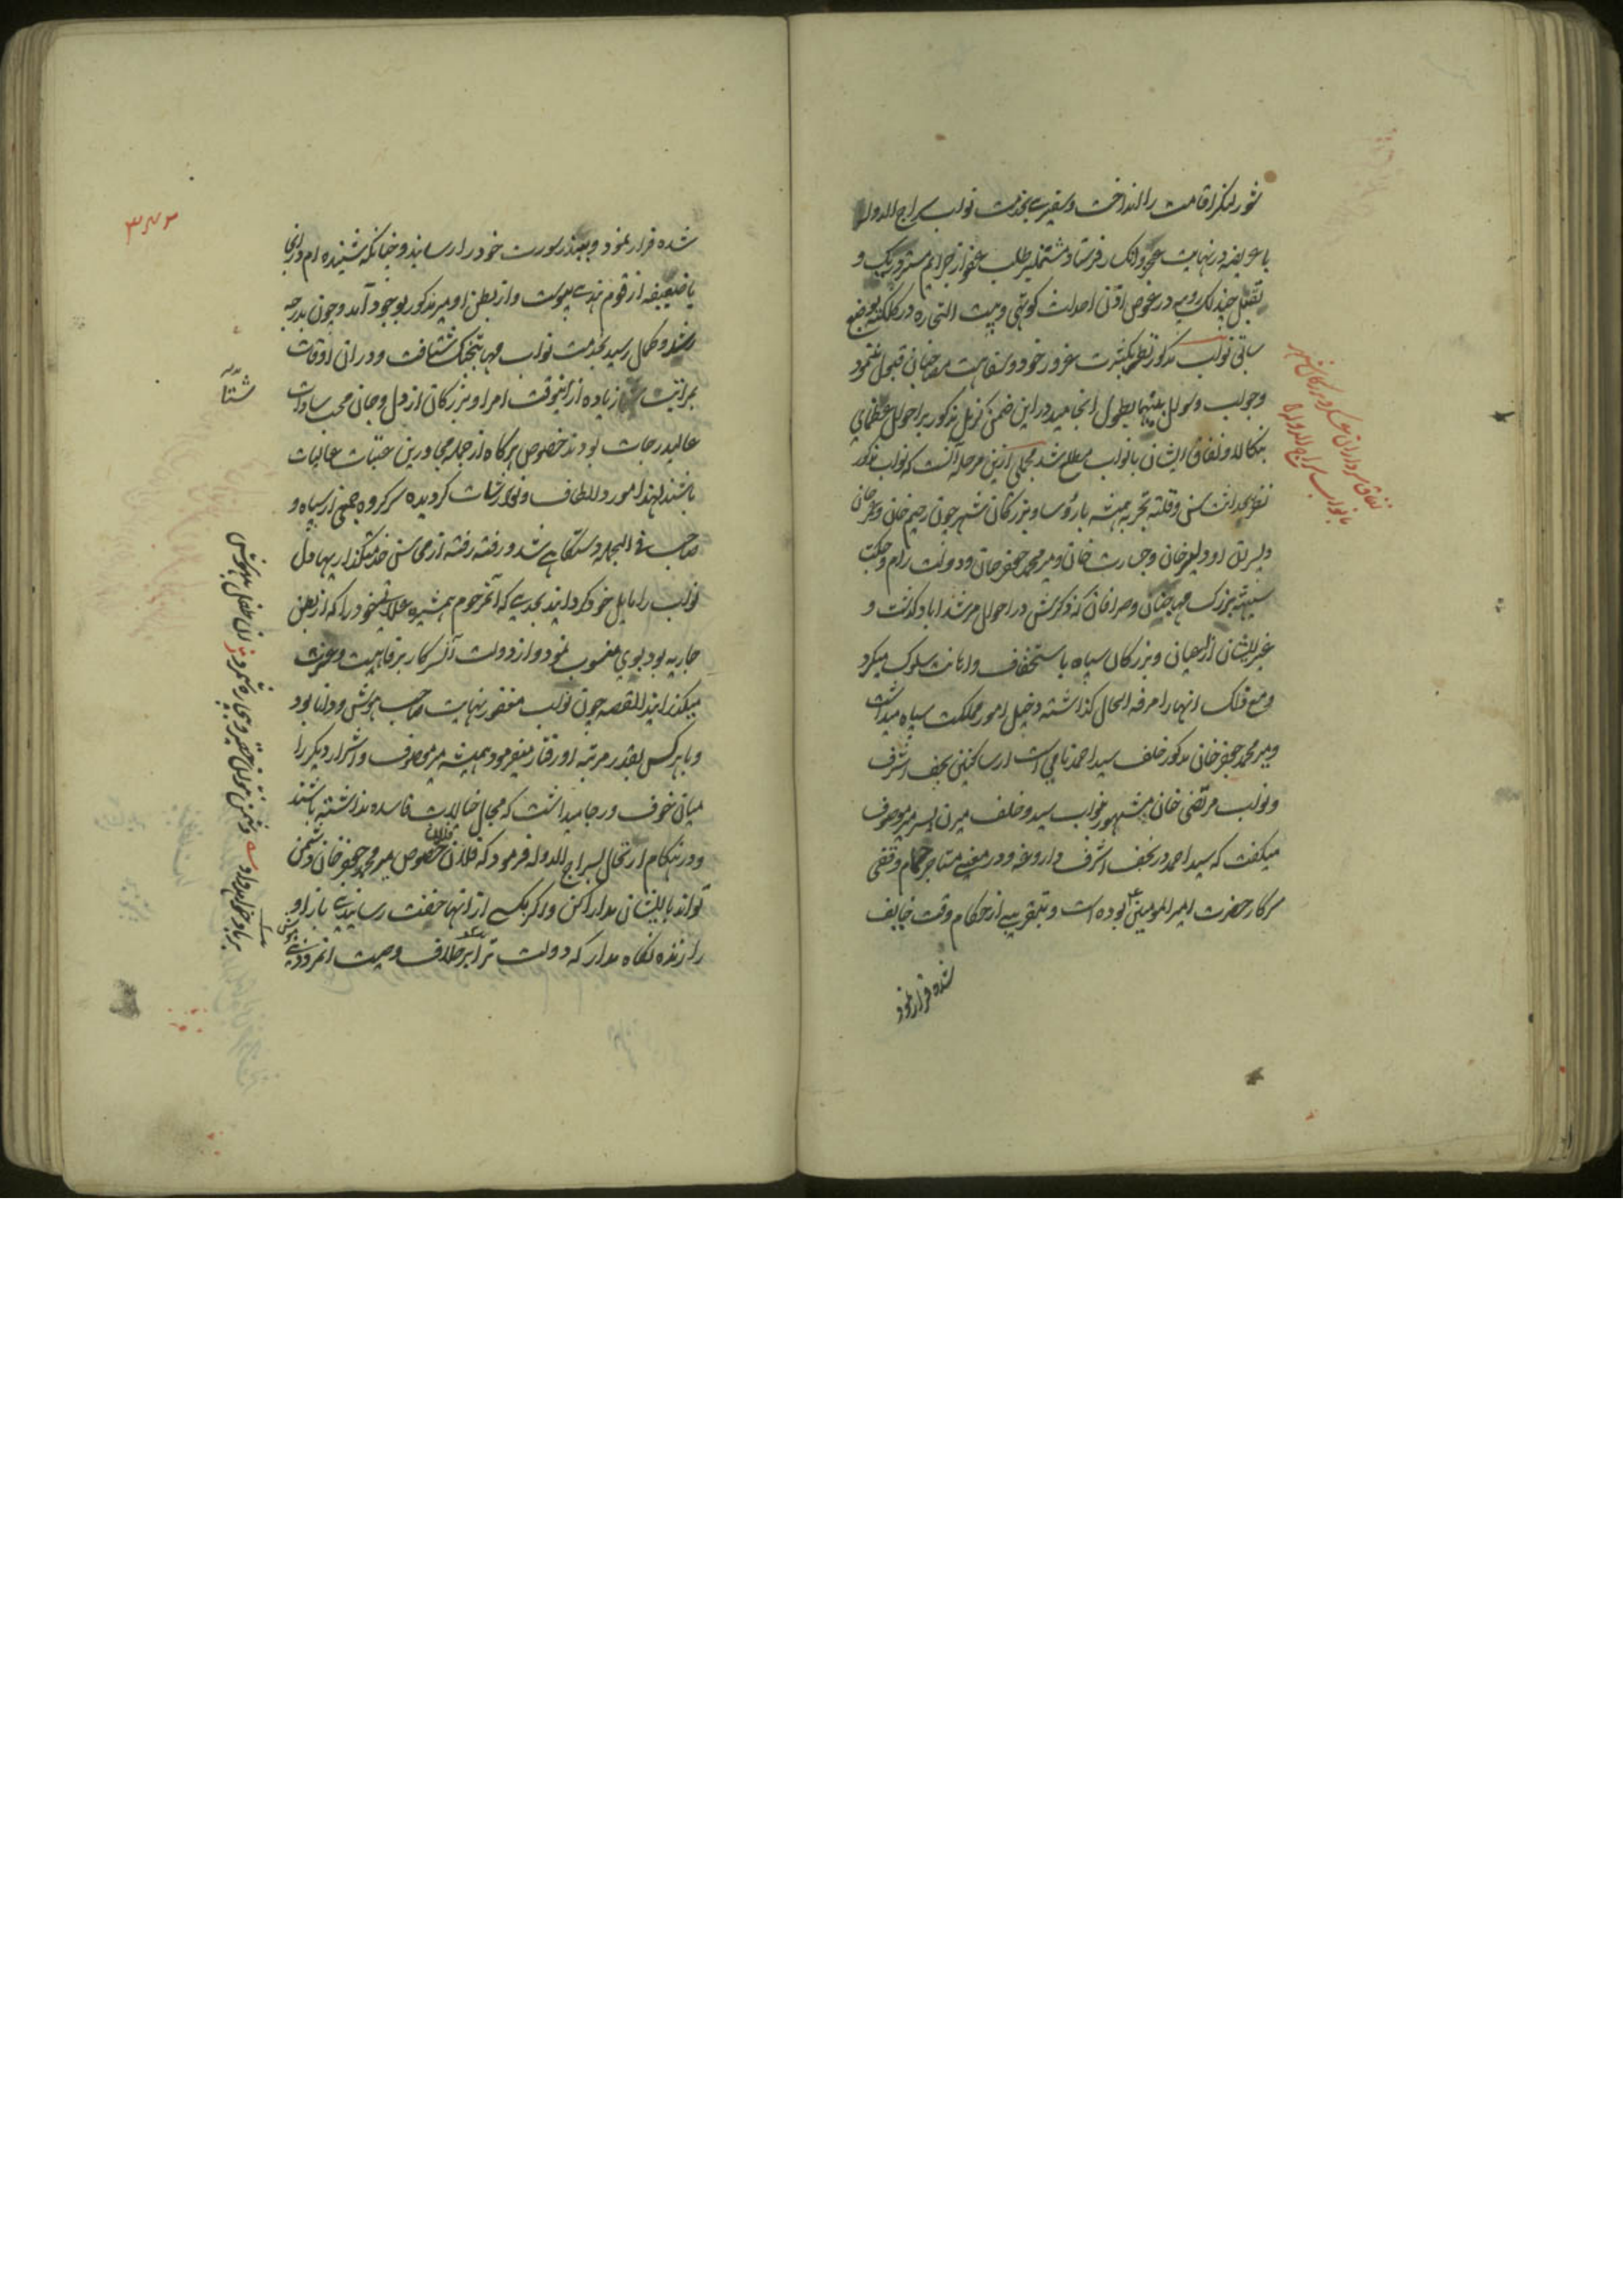 شور لنگر اقامت را انداخت و سفیری بخدمت نواب سراج الدوله
با عریضه در نهایت عجز و انکسار فرستاد مشتمل بر طلب عفو از جرایم مستر دریک و
تقبل چند لک روپیه در عوض اذن احداث کوتهی و بیت التجاره در کلکته بوضع
سابق نواب مذکور نظر بکثرت غرور خود و سفاهت مصاحبان قبول ننمود
و جواب و سوال بینهما بطول انجامید در این ضمن کرنل مذکور بر احوال عظمای
بنکاله و نفاق ایشان با نواب مطلع شد مجملی از این مرحله آنست که نواب مذکور
نظر بحداثت سن و قلت تجربه همیشه با رؤسا و بزرکان شهر چون رحیم خان و عمر خان
و پسران او دلیر خان و جسارت خان و میر محمد جعفر خان و دولت رام و جکت
سیته بزرک مهاجنان و صرافان که ذکرش در احوال مرشداباد گذشت و
غیر ایشان از اعیان و بزرکان سپاه باستخفاف و اهانت سلوک میکرد
و مع ذلک انها را مرفه الحال گذاشته دخیل امور مملکت و سپاه میداشت
و میر محمد جعفر خان مذکور خلف سید احمد نامی است از ساکنین نجف اشرف
و نواب مرتضی خان مشهور بنواب سید و خلف میرن پسر میر موصوف
میکفت که سید احمد در نجف اشرف داروغه و در معنی مستاجر حمام وقفی
سرکار حضرت امیر المومنین بوده است و بتقریبی از حکام وقت خایف
شده فرار نمود
نفاق سرداران عسکر و بزرکان شهر
با نواب سراج الدوله
۳۴۲
شده فرار نمود و ببندر سورت خود را رسانید و چنانکه شنیده ام در انجا
با ضعیفه از قوم هندی پیوست و از بطن او میر مذکور بوجود آمد و چون بدرجه
رشد و کمال رسید بخدمت نواب مهابتجنگ شتافت و در ان اوقات
بمراتب شتا زیاده از اینوقت امرا و بزرکان از دل و جان محب سادات
عالیدرجات بودند خصوص هرکاه از جمله مجاورین عتبات عالیات
باشند لهذا مورد الطاف و نوازشات کردیده سرکرده جمعی از سپاه و
صاحب فی الجمله دستکاهی شد و رفته رفته از محاسن خدمتکذاریها دل
نواب را مایل خود کردانید بحدی که آنمرحوم همشیره علاتی خود را که از بطن
جاریه بود بوی منسوب نمود و از دولت آنسرکار برفاهیت و عزت
میکذرانید القصه چون نواب مغفور نهایت صاحب هوش و دانا بود
و با هر کس بقدر مرتبه او رفتار میفرمود همیشه میر موصوف و اشرار دیکر را
میان خوف و رجا میداشت که مجال خیالات فاسده نداشته باشند
و در هنکام ارتحال بسراج الدوله فرمود که فلان و فلان خصوص میر محمد جعفر خان دشمن
تواند با ایشان مدارا کن و اگر یکی از انها خفت رسانیدی باز او
را زنده نکاه مدار که دولت ترا بر خلاف وصیت
شتا